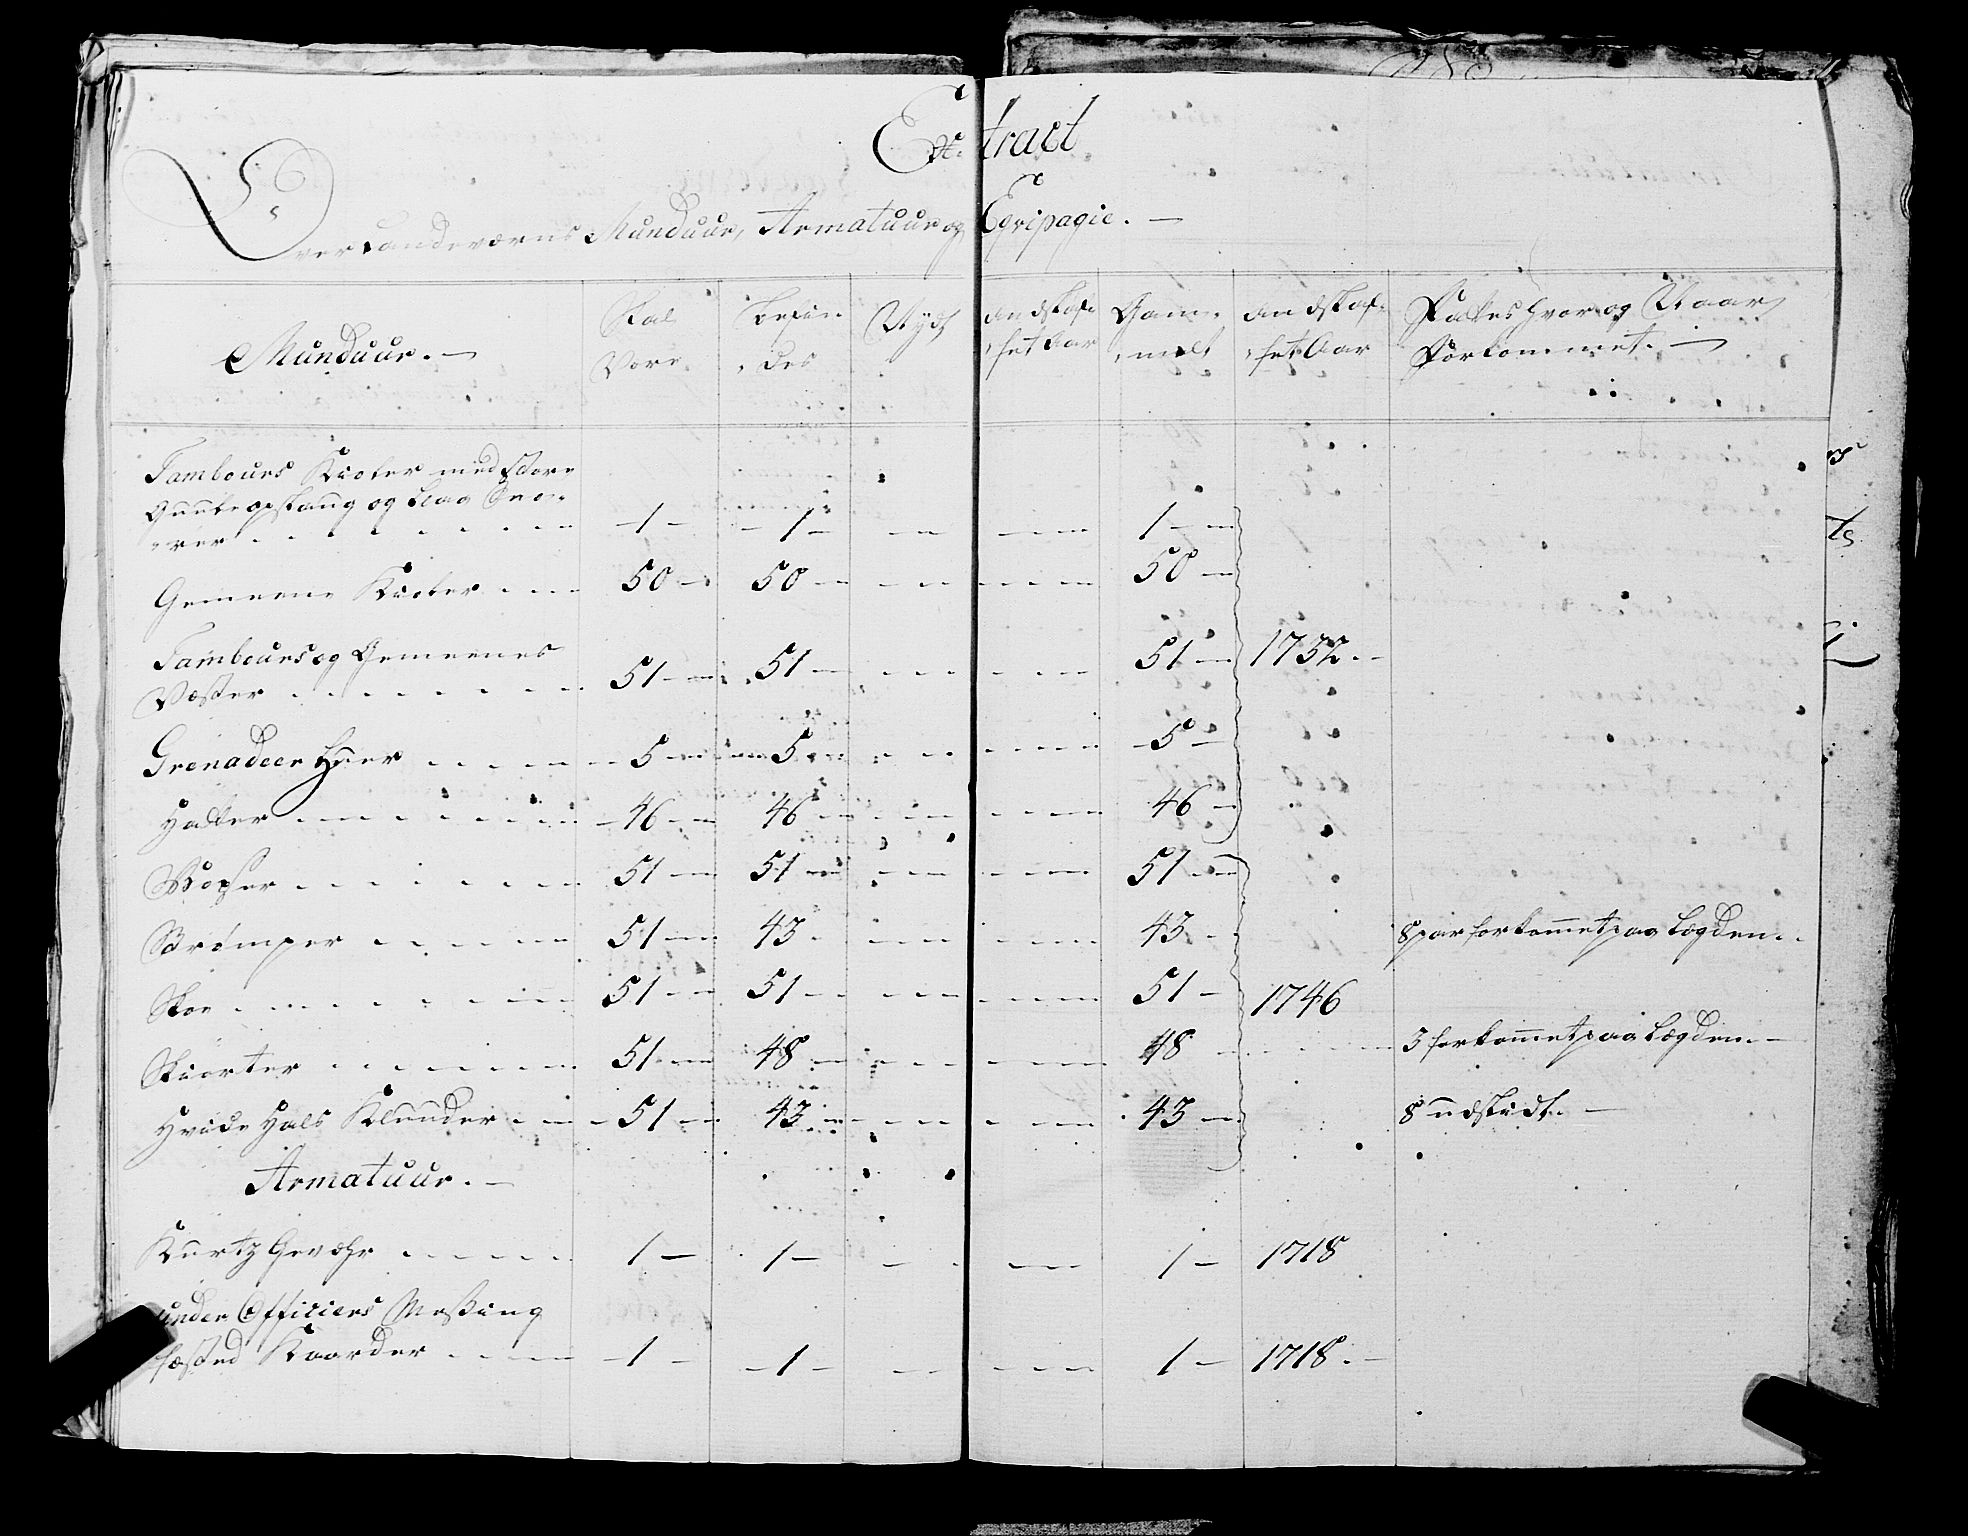 Extract
Over Landeværns Munduur, Armatuur og Eqvipagie. —
Munduur. — Skal Være Befin- des Nÿdt andskaf- fet Aar Gam- melt andskaf- fet Aar Fattes hvor og Naar
Forkommet. —
Tambours Kioler med store
Guule og blaa
1 1 1
Gemeene Kioler 50 50 50
Tambours og Gemeenes
Væster 51 51 51 1732. —
Grenadeer Huer 5 5 5
Hatter 46 46 46
Buxer 51 51 51
Strømper 51 43 43 8 par forkommet paa Lægden.
Skoe 51 51 51 1746
Skiorter 51 48 48 3 forkommet paa Lægden. —
Hvide Hals Kluuder 51 43 43 8 udslidt. —
Armatuur. —
Kurtz Gevæhr 1 1 1 1718
Under Officiers Messing
fæsted Kaarder 1 1 1 1718. —